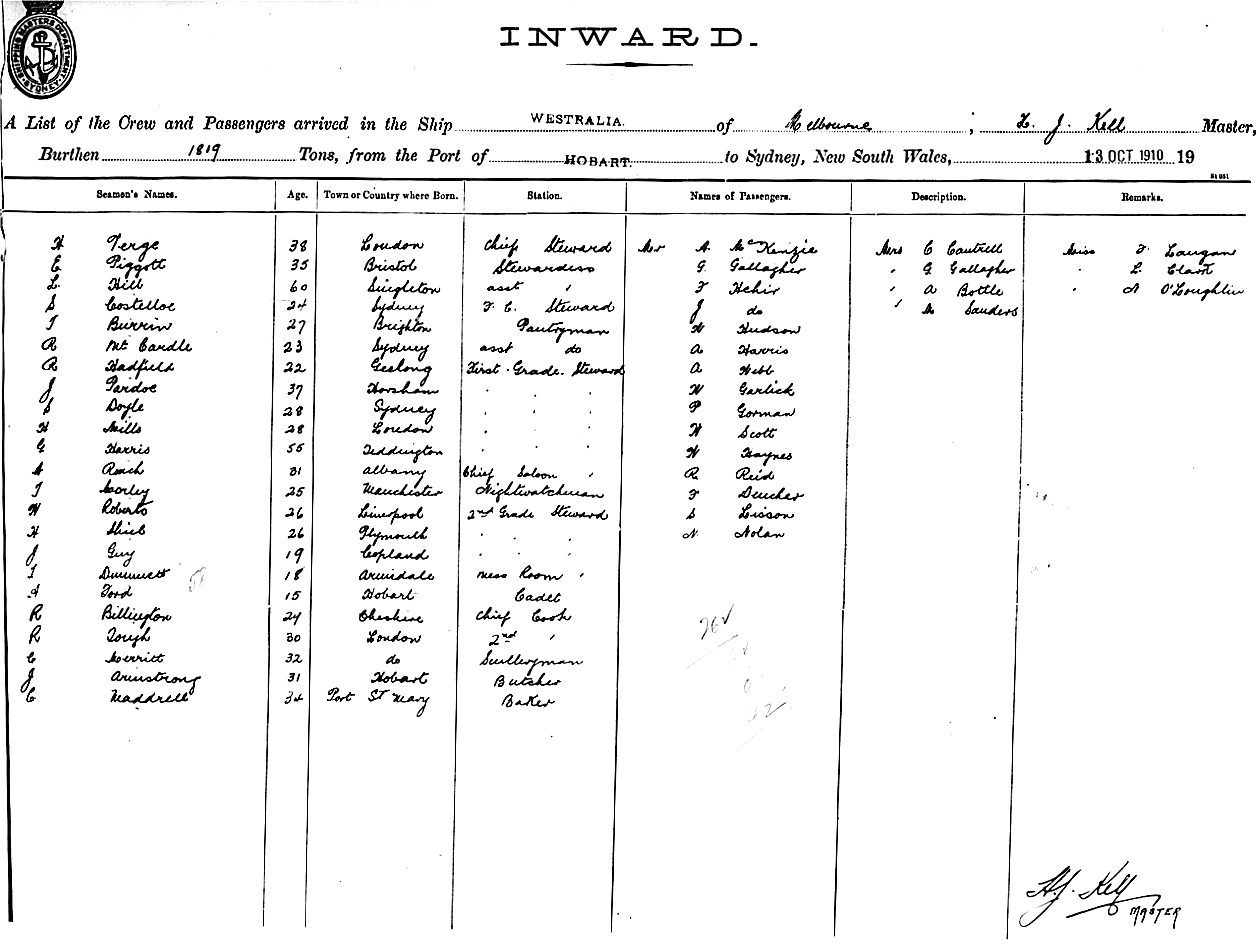 SHIPPING MASTERS DEPARTMENT SYDNEY
INWARD.
A List of the Crew and Passengers arrived in the Ship WESTRALIA. of Melbourne ; H. J. Kell Master,
Burthen 1819 Tons, from the Port of HOBART. to Sydney, New South Wales, 13 OCT 1910 19
Seamen's Names. Age. Town or Country where Born. Station. Names of Passengers. Description. Remarks.
H Terge 38 London Chief Steward Mr A McKenzie Mrs C Cantrell Miss F Langan
E Piggott 35 Bristol Stewardess G Gallagher " G Gallagher " L Clark
L Hill 60 Singleton asst " F Hehir " A Bottle " N O'Loughlin
S Costelloe 24 Sydney F. C. Steward J do " M Sanders
T Burrin 27 Brighton Pantryman W Hudson
R Mc Cardle 23 Sydney asst do A Harris
R Hadfield 22 Geelong First Grade Steward A Webb
J Pardoe 37 Horsham " " " W Garlick
S Doyle 28 Sydney " " " P Gorman
H Mills 28 London " " " W Scott
G Harris 55 Teddington " " " W Haynes
A Roach 31 Albany Chief Saloon " R Reid
T Morley 25 Manchester Nightwatchman F Deucher
W Roberts 26 Liverpool 2nd Grade Steward S Lisson
H Shiels 26 Plymouth " " " N Nolan
J Guy 19 Copland " " "
T Dummett 18 Armidale Mess Room "
A Ford 15 Hobart Cadet
R Billington 24 Cheshire Chief Cook
R Tough 30 London 2nd "
C Merritt 32 do Sculleryman
J Armstrong 31 Hobart Butcher
C Maddrell 34 Port St Mary Baker
H.J. Kell
MASTER